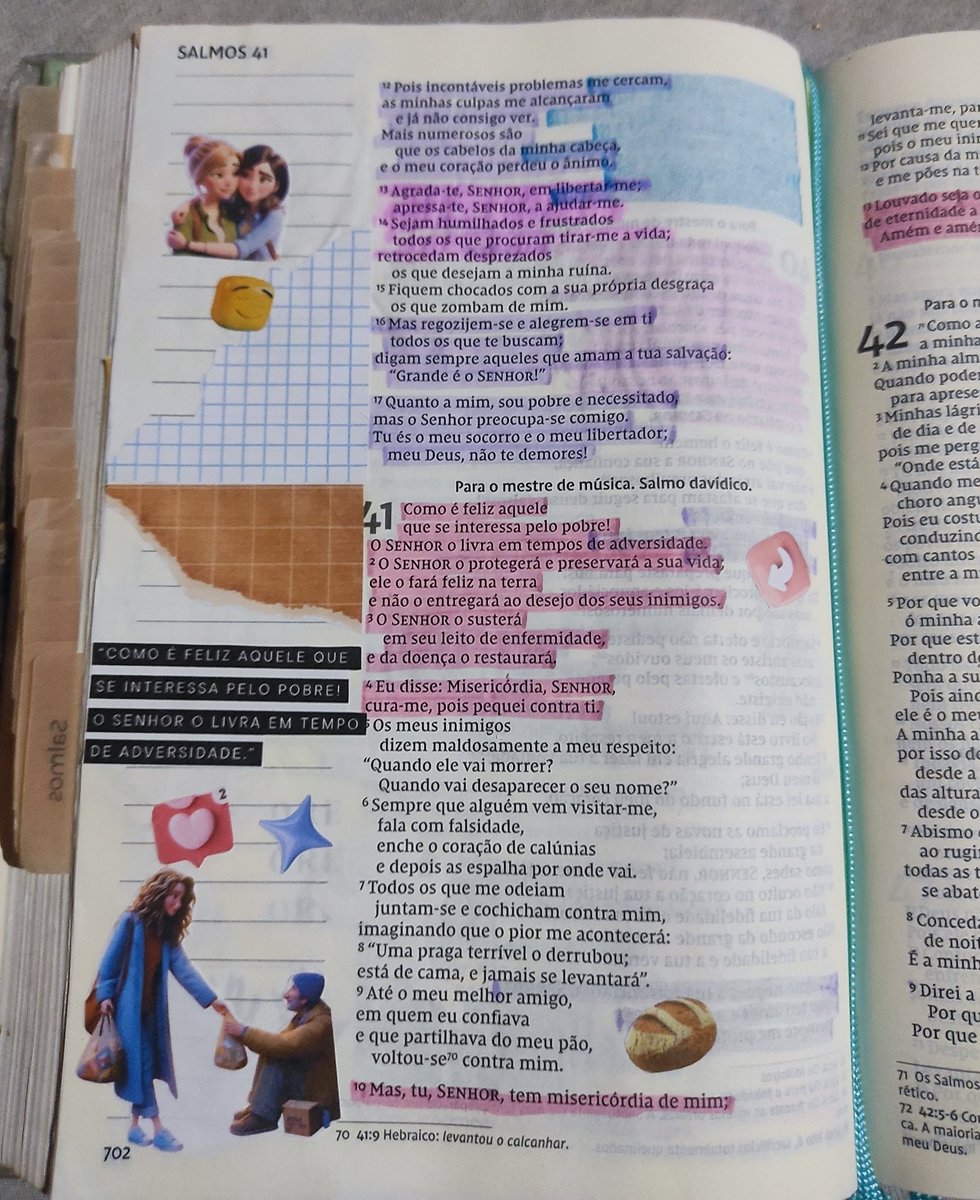 SALMOS 41
¹² Pois incontáveis problemas me cercam,
as minhas culpas me alcançaram
e já não consigo ver.
Mais numerosos são
que os cabelos da minha cabeça,
e o meu coração perdeu o ânimo.
¹³ Agrada-te, SENHOR, em libertar-me;
apressa-te, SENHOR, a ajudar-me.
¹⁴ Sejam humilhados e frustrados
todos os que procuram tirar-me a vida;
retrocedam desprezados
os que desejam a minha ruína.
¹⁵ Fiquem chocados com a sua própria desgraça
os que zombam de mim.
¹⁶ Mas regozijem-se e alegrem-se em ti
todos os que te buscam;
digam sempre aqueles que amam a tua salvação:
“Grande é o SENHOR!”
¹⁷ Quanto a mim, sou pobre e necessitado,
mas o Senhor preocupa-se comigo.
Tu és o meu socorro e o meu libertador;
meu Deus, não te demores!
Para o mestre de música. Salmo davídico.
41 Como é feliz aquele
que se interessa pelo pobre!
O SENHOR o livra em tempos de adversidade.
² O SENHOR o protegerá e preservará a sua vida;
ele o fará feliz na terra
e não o entregará ao desejo dos seus inimigos.
³ O SENHOR o susterá
em seu leito de enfermidade,
e da doença o restaurará.
⁴ Eu disse: Misericórdia, SENHOR,
cura-me, pois pequei contra ti.
⁵ Os meus inimigos
dizem maldosamente a meu respeito:
“Quando ele vai morrer?
Quando vai desaparecer o seu nome?”
⁶ Sempre que alguém vem visitar-me,
fala com falsidade,
enche o coração de calúnias
e depois as espalha por onde vai.
⁷ Todos os que me odeiam
juntam-se e cochicham contra mim,
imaginando que o pior me acontecerá:
⁸ “Uma praga terrível o derrubou;
está de cama, e jamais se levantará”.
⁹ Até o meu melhor amigo,
em quem eu confiava
e que partilhava do meu pão,
voltou-se⁷⁰ contra mim.
¹⁰ Mas, tu, SENHOR, tem misericórdia de mim;
70 41:9 Hebraico: levantou o calcanhar.
"COMO É FELIZ AQUELE QUE
SE INTERESSA PELO POBRE!
O SENHOR O LIVRA EM TEMPO
DE ADVERSIDADE."
2
Salmos
702
levanta-me, par
¹¹ Sei que me quer
pois o meu ini
¹² Por causa da m
e me pões na t
¹³ Louvado seja o
de eternidade a
Amém e amé
Para o m
42 Como a
a minha
² A minha alm
Quando poder
para aprese
³ Minhas lágri
de dia e de
pois me perg
“Onde está
⁴ Quando me
choro angu
Pois eu costu
conduzind
com cantos
entre a m
⁵ Por que vo
ó minha a
Por que est
dentro de
Ponha a su
Pois aind
ele é o me
A minha a
por isso de
desde a
das altura
desde o
⁷ Abismo
ao rugir
todas as t
se abat
⁸ Conceda
de noit
É a minh
⁹ Direi a
Por qu
Por que
71 Os Salmos
rético.
72 42:5-6 Co
ca. A maioria
meu Deus.